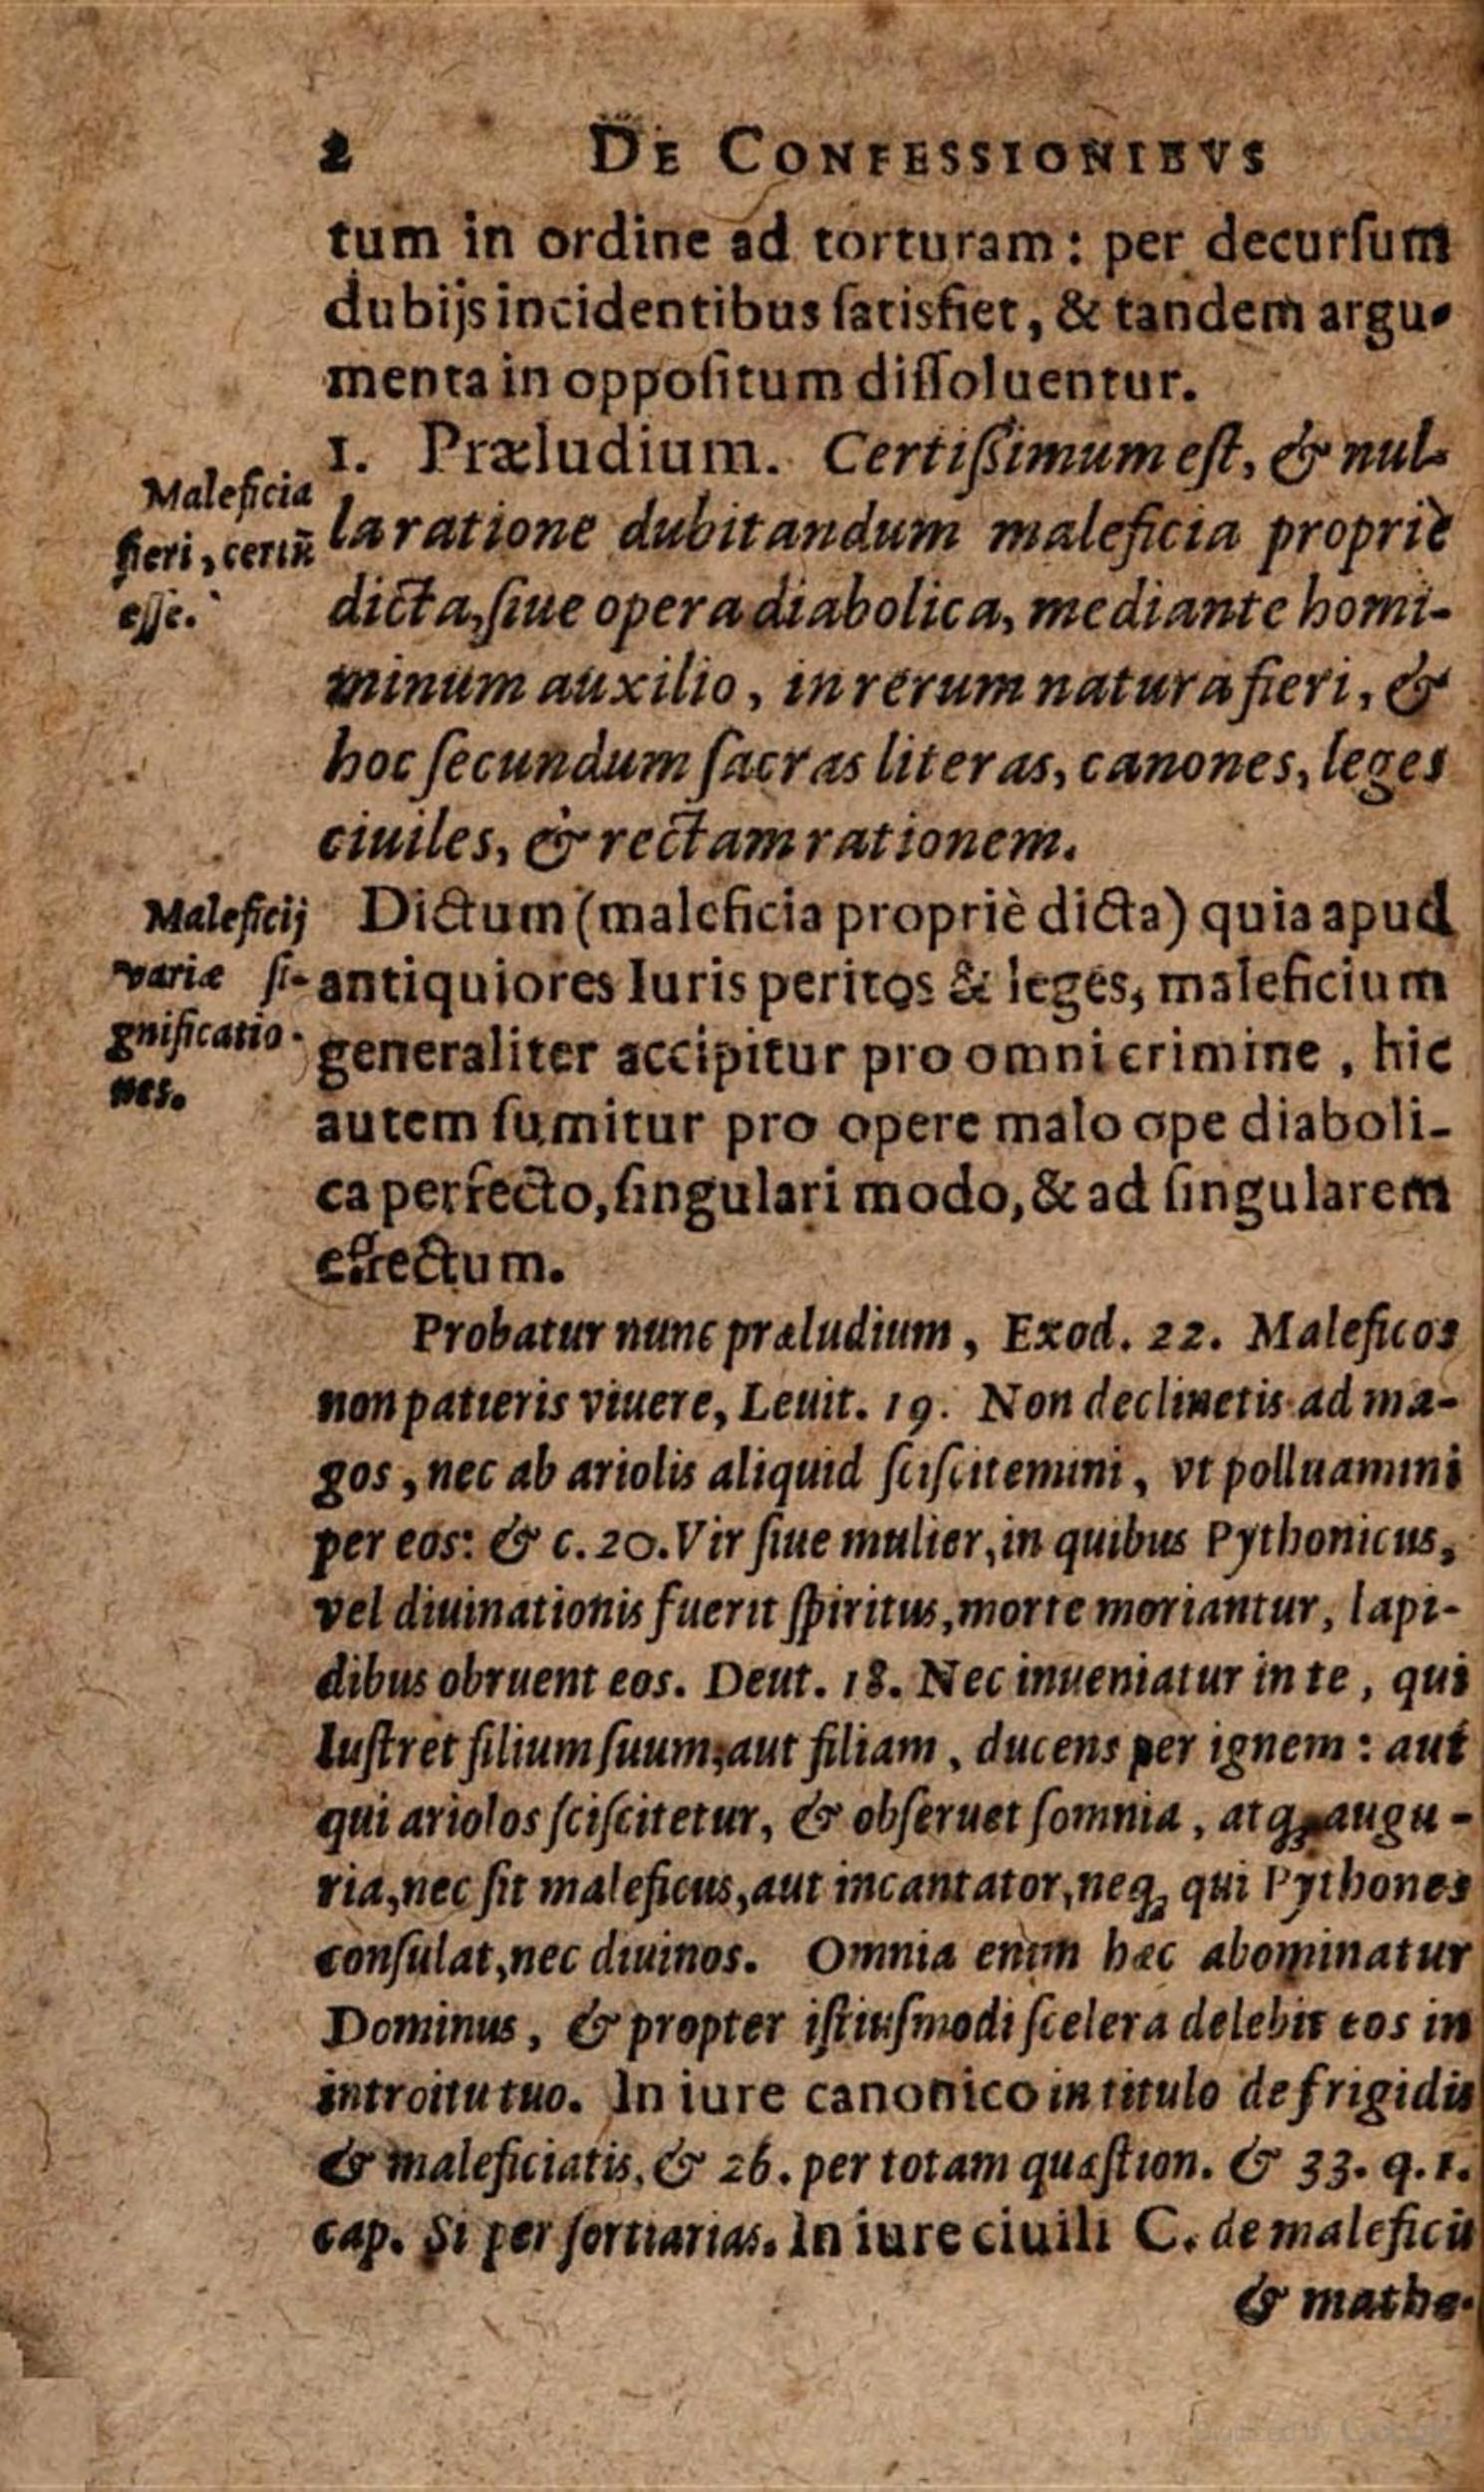 2 DE CONFESSIONIBVS
tum in ordine ad torturam: per decurſum
dubijs incidentibus ſatisfiet, & tandem argu-
menta in oppoſitum diſſoluentur.
1. Præludium. Certiſſimum eſt, & nul-
Maleficia
fieri, certũ
eſſe.
la ratione dubitandum maleficia propriè
dicta, ſiue opera diabolica, mediante homi-
minum auxilio, in rerum natura fieri, &
hoc ſecundum ſacras literas, canones, leges
ciuiles, & rectam rationem.
Maleficij
variæ ſi-
gnificatio-
nes.
Dictum (maleficia propriè dicta) quia apud
antiquiores Iuris peritos & leges, maleficium
generaliter accipitur pro omni crimine, hic
autem ſumitur pro opere malo ope diaboli-
ca perfecto, ſingulari modo, & ad ſingularem
effectum.
Probatur nunc præludium, Exod. 22. Maleficos
non patieris viuere, Leuit. 19. Non declinetis ad ma-
gos, nec ab ariolis aliquid ſciſcitemini, vt polluamini
per eos: & c. 20. Vir ſiue mulier, in quibus Pythonicus,
vel diuinationis fuerit ſpiritus, morte moriantur, lapi-
dibus obruent eos. Deut. 18. Nec inueniatur in te, qui
luſtret filium ſuum, aut filiam, ducens per ignem: aut
qui ariolos ſciſcitetur, & obſeruet ſomnia, atq; augu-
ria, nec ſit maleficus, aut incantator, neq; qui Pythones
conſulat, nec diuinos. Omnia enim hæc abominatur
Dominus, & propter iſtiuſmodi ſcelera delebit eos in
introitu tuo. In iure canonico in titulo de frigidis
& maleficiatis, & 26. per totam quæſtion. & 33. q. 1.
cap. Si per ſortiarias. In iure ciuili C. de maleficis
& mathe-